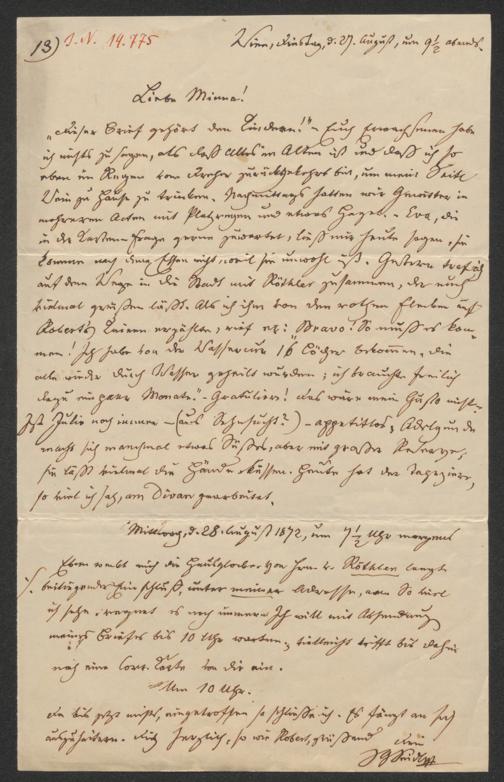 13) I.N. 14.775
Wien, Dinstag, d. 27. August, um 9½ abends.
Liebe Minna!
„Dieser Brief gehört den Kindern!" – Euch Erwachsenen habe
ich nichts zu sagen, als daß Alles im Alten ist und daß ich so
eben im Regen vom zurückgekehrt bin, um mein Seitl
Wein zu Hause zu trinken. Nachmittags hatten wir Gewitter in
mehreren Acten mit Platzregen und etwas Hagel. – Eva, die
in der Frage gerne zuwartet, läßt mir heute sagen, sie
komme nach dem Essen nicht, weil sie unwohl ist. Gestern traf ich
auf dem Wege in die Stadt mit Köchler zusammen, der euch
vielmal grüßen läßt. Als ich ihm von den rothen Flecken auf
Roberts erzählte, rief er: „Bravo! So muß es kom-
men! Ich habe von der Wassercur 16 Löcher bekommen, die
alle wieder durch Wasser geheilt wurden; ich brauchte freilich
dazu ein paar Monate." – Gratuliere! das wäre mein Gusto nicht.
Ist Julie noch immer – (aus Sehnsucht?) – appetitlos;
macht sich manchmal etwas Süßes, aber mit großer Reserve,
sie läßt vielmal die Hände küssen. Heute hat der Tapezierer,
so viel ich sah, am Divan gearbeitet.
Mittwoch, d. 28. August 1872, um 7½ Uhr morgens
Eben weckt mich die Hausglocke. Von Hrn. v. Köchler langte
beiliegender Einschluß, unter meiner Adresse, an. So viel
ich sehe, regnet es noch immer. Ich will mit Absendung
meines Briefes bis 10 Uhr warten; vielleicht trifft bis dahin
noch eine Corr. Karte von dir ein.
Um 10 Uhr.
Da bis jetzt nichts eingetroffen, so schließe ich. Es fängt an sich
auszuheitern. Dich herzlich, so wie Robert, grüßend
Dein